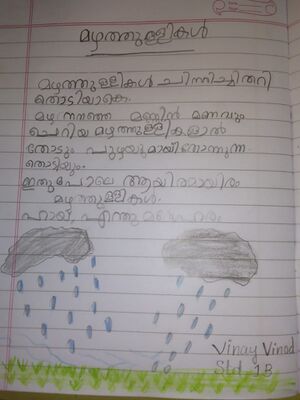 മഴത്തുള്ളികൾ
മഴത്തുള്ളികൾ ചിന്നിച്ചിതറി
തൊടിയാകെ.
മഴ നനഞ്ഞ മണ്ണിൻ മണവും
ചെറിയ മഴത്തുള്ളികളാൽ
തോടും പുഴയുമായിതോന്നുന്ന
തൊടിയും.
ഇതുപോലെ ആയിരമായിരം
മഴത്തുള്ളികൾ.
ഹായ്, എന്തു മനോഹരം.
Vinay Vinod
Std 1B